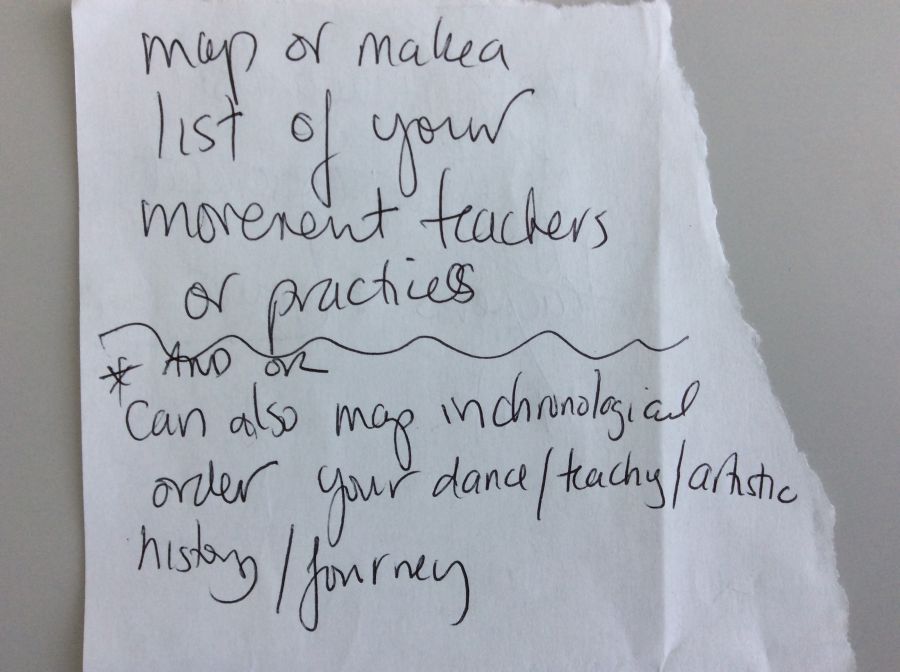 map or make a
list of your
movement teachers
or practices
* AND OR
Can also map in chronological
order your dance/teaching/artistic
history/journey